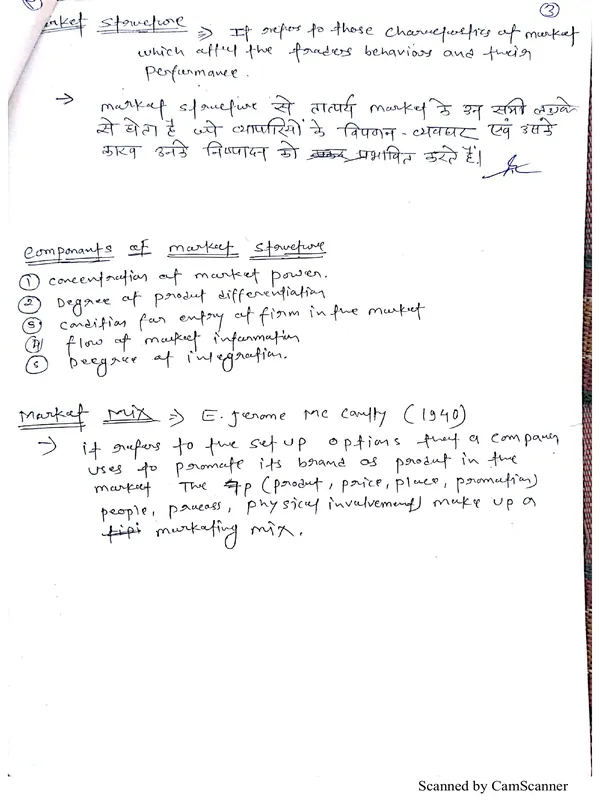 ③
Market Structure => It refers to those characteristics of market
which affect the traders behaviors and their
performance.
→ market structure से तात्पर्य market के उन सभी
से होता है जो व्यापारियों के विपणन - व्यवहार एवं उसके
कारण उनके निष्पादन को प्रभावित करते हैं।
Components of market structure
① concentration of market power.
② Degree of product differentiation
③ condition for entry of firm in the market
④ flow of market information
⑤ Deegree of integration.
Market Mix => E. Jerome Mc Carthy (1940)
→ it refers to the set up options that a company
uses to promote its brand as product in the
market The 7p (product, price, place, promotion)
people, process, physical involvement) make up a
marketing mix.
Scanned by CamScanner